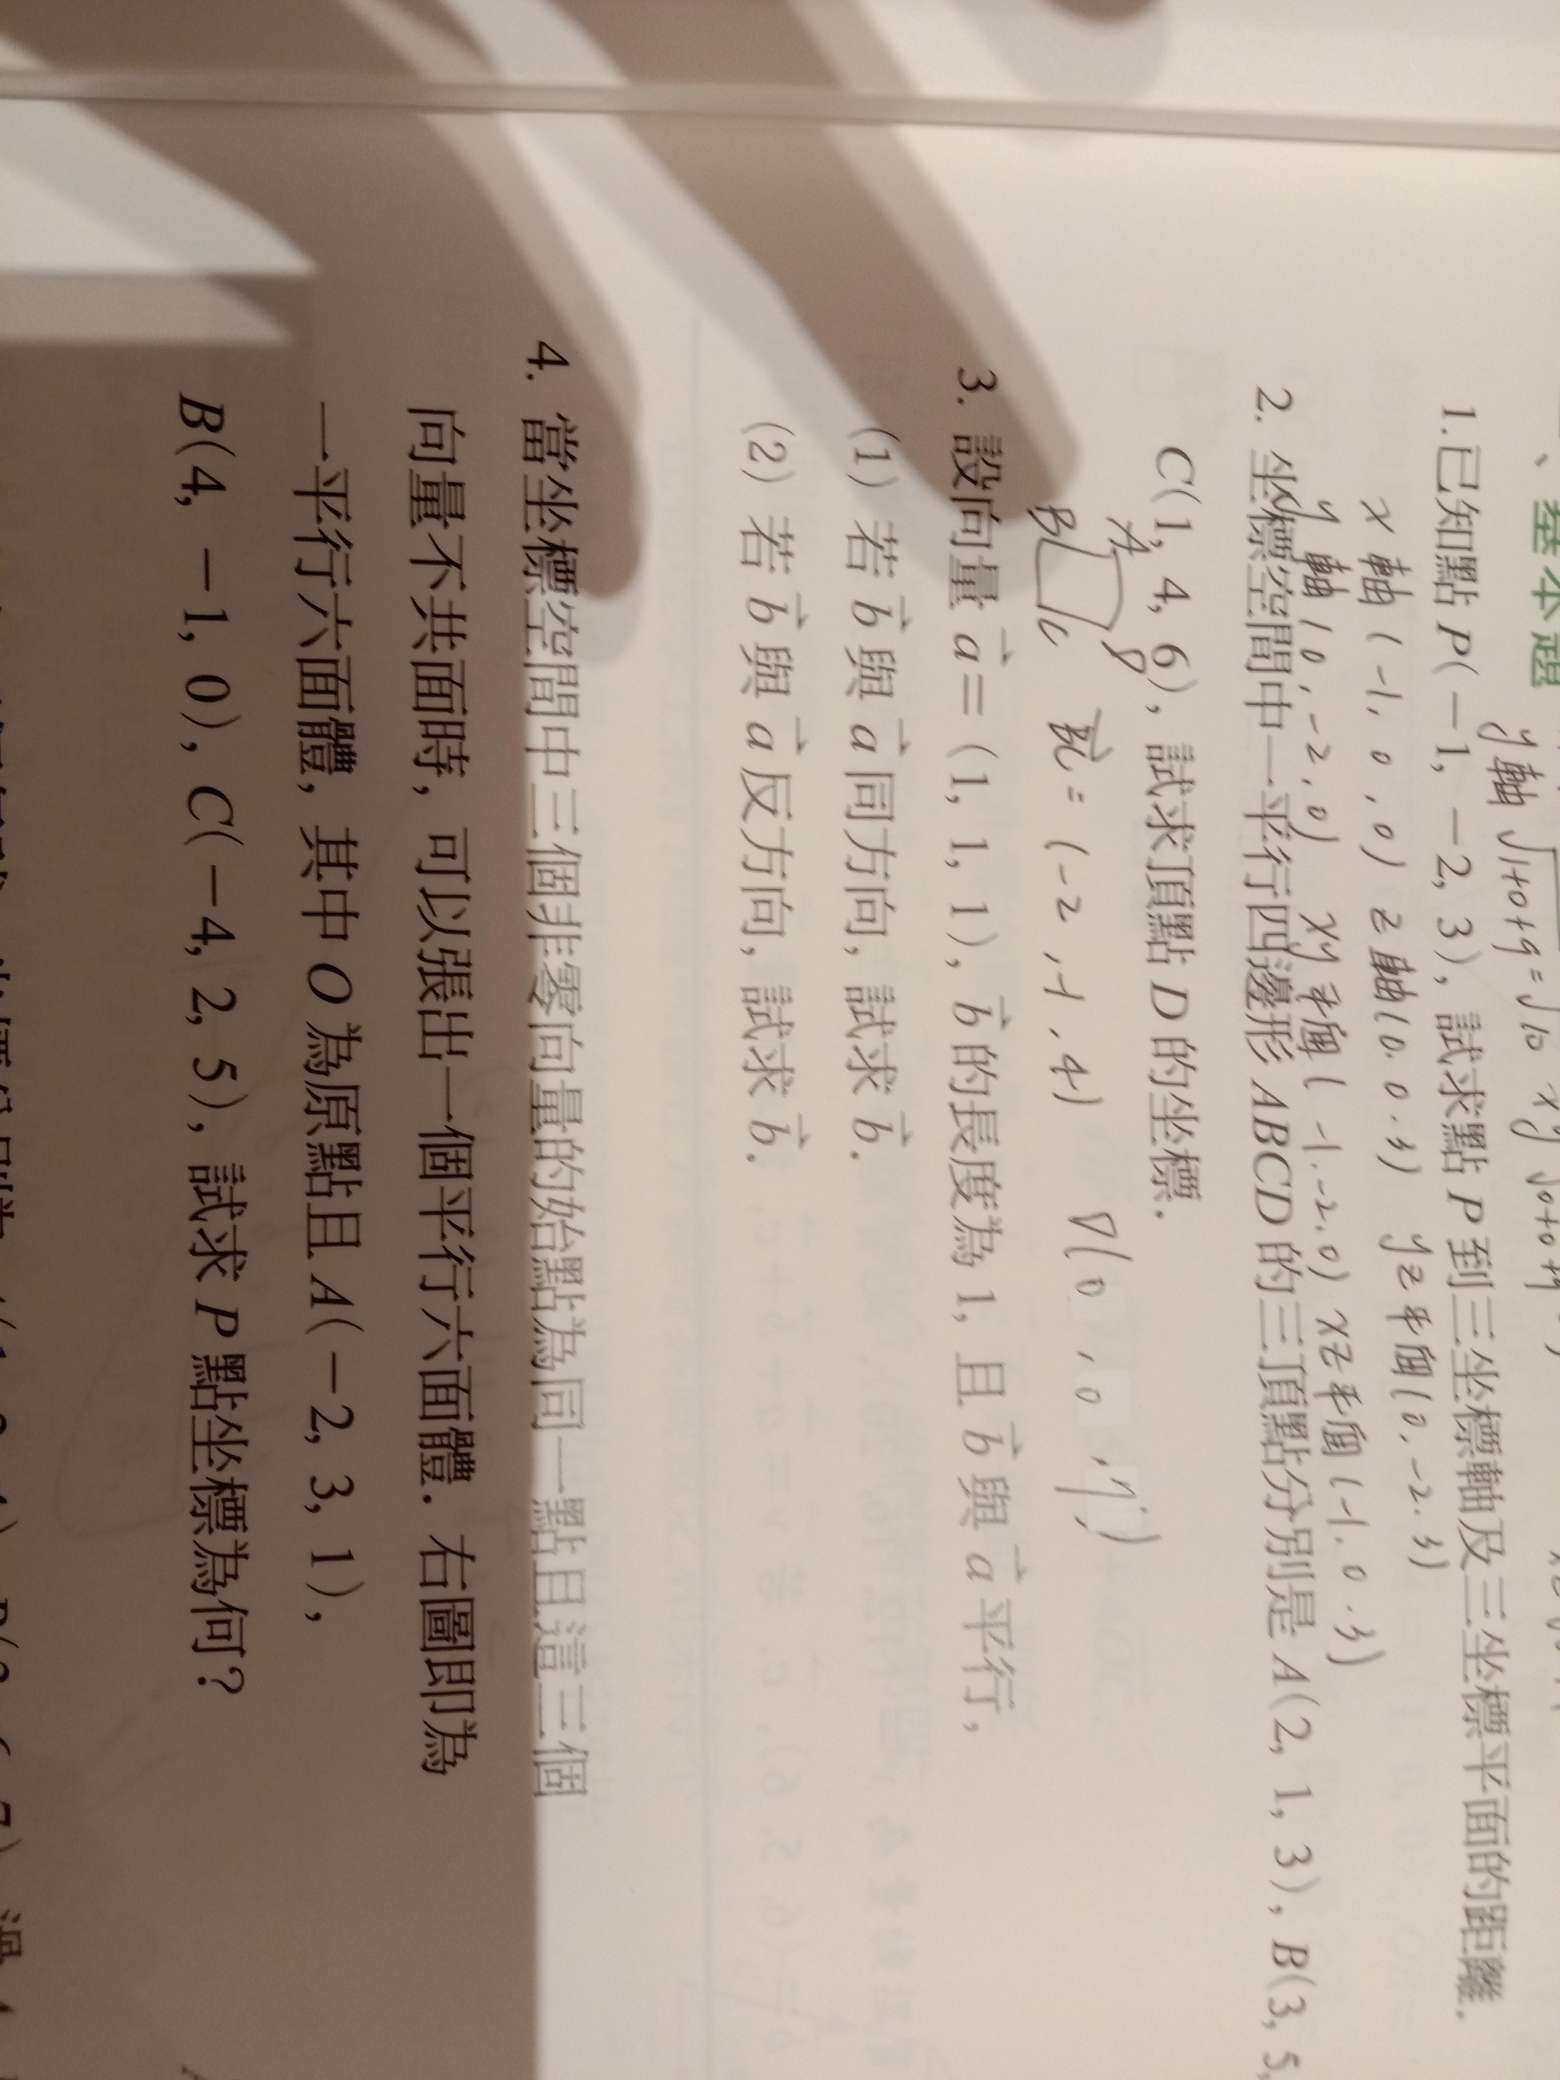 、基本題
y軸 √1+0+9=√10 xy √0+0+9
1.已知點 P(-1, -2, 3), 試求點 P 到三坐標軸及三坐標平面的距離.
x 軸 (-1, 0, 0) z 軸(0.0.3) yz平面(0.-2.3)
y 軸(0,-2,0) xy平面(-1.-2.0) xz平面(-1.0.3)
2. 坐標空間中一平行四邊形 ABCD 的三頂點分別是 A(2, 1, 3), B(3, 5,
C(1, 4, 6), 試求頂點 D 的坐標.
A D
B C BC = (-2, -1, 4) D(0, 0, 7)
3. 設向量 a = (1, 1, 1), b 的長度為 1, 且 b 與 a 平行,
(1) 若 b 與 a 同方向, 試求 b.
(2) 若 b 與 a 反方向, 試求 b.
4. 當坐標空間中三個非零向量的始點為同一點且這三個
向量不共面時, 可以張出一個平行六面體. 右圖即為
一平行六面體, 其中 O 為原點且 A(-2, 3, 1),
B(4, -1, 0), C(-4, 2, 5), 試求 P 點坐標為何?